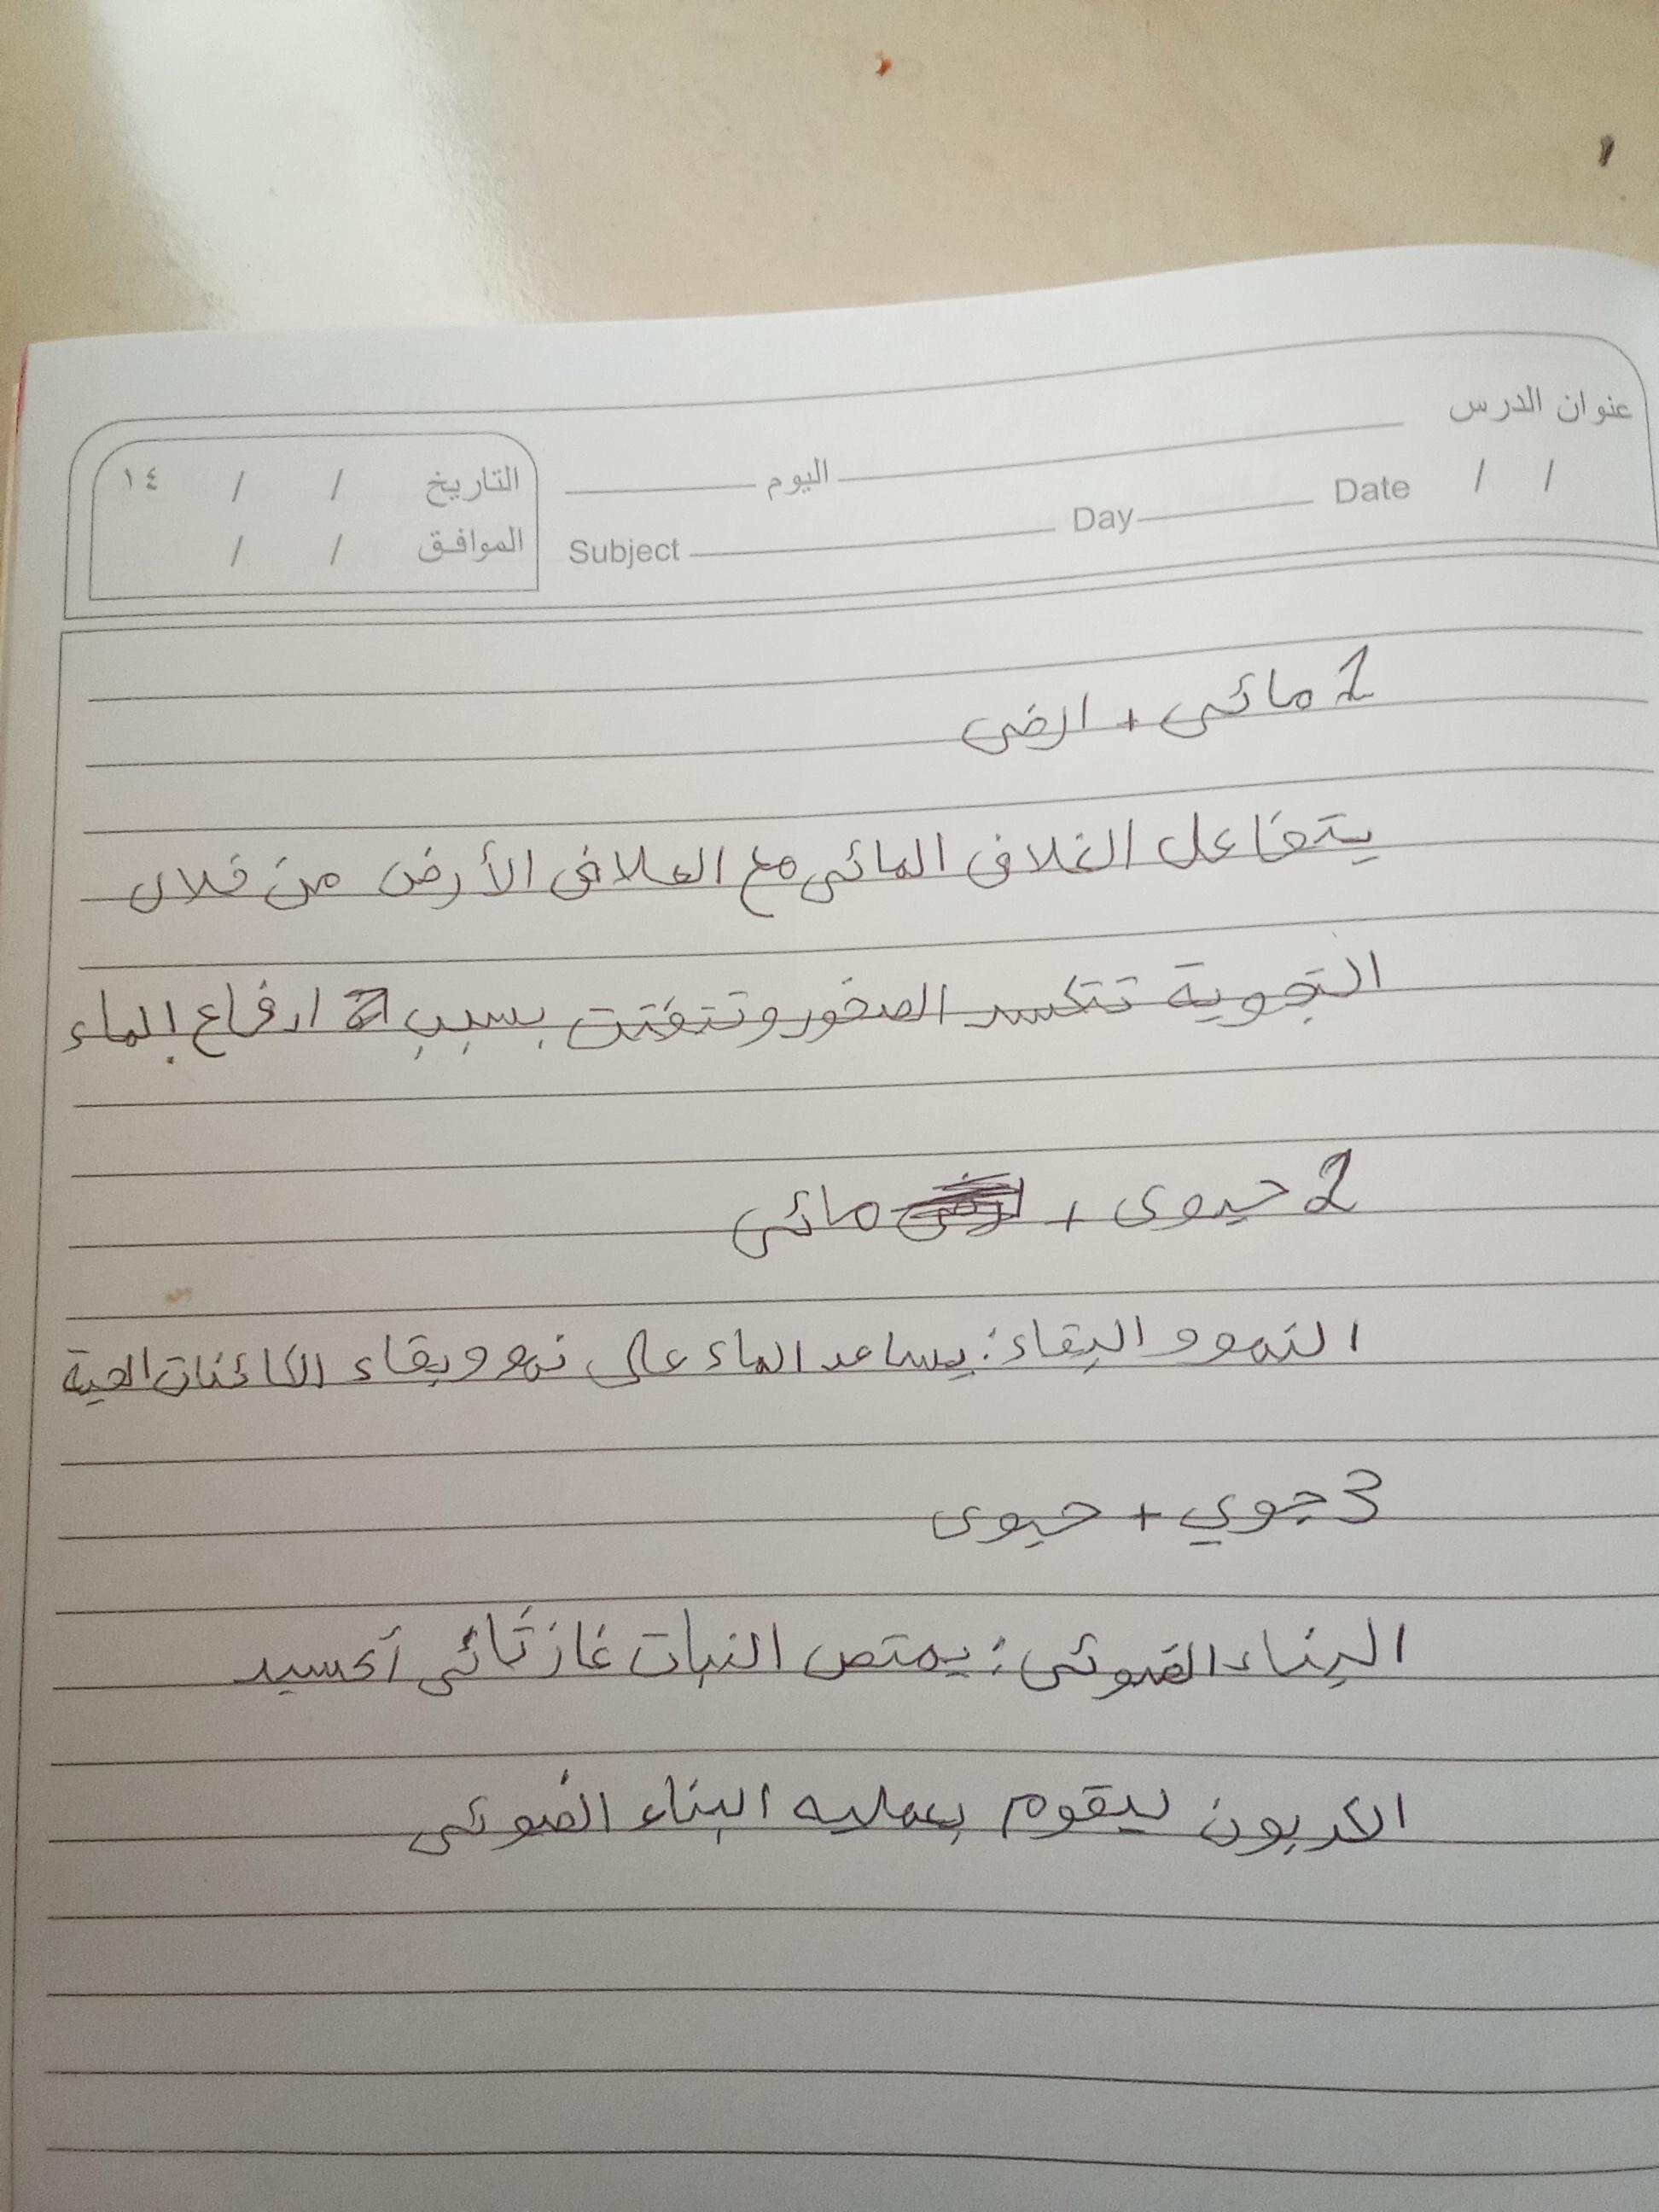 عنوان الدرس
اليوم
التاريخ / / ١٤
Date / /
Day
Subject
الموافق / /
1 مائى + ارضى
يتفاعل الغلاف المائى مع الغلاف الأرض من خلال
التجوية تتكسر الصخور وتتفتت بسبب ارفاع الماء
2 حيوى + مائى
النمو والبقاء: يساعد الماء على نمو وبقاء الكائنات الحية
3 جوي + حيوى
البناء الضوئى: يمتص النبات غاز ثائى أكسيد
الكربون ليقوم بعمليه البناء الضوئى